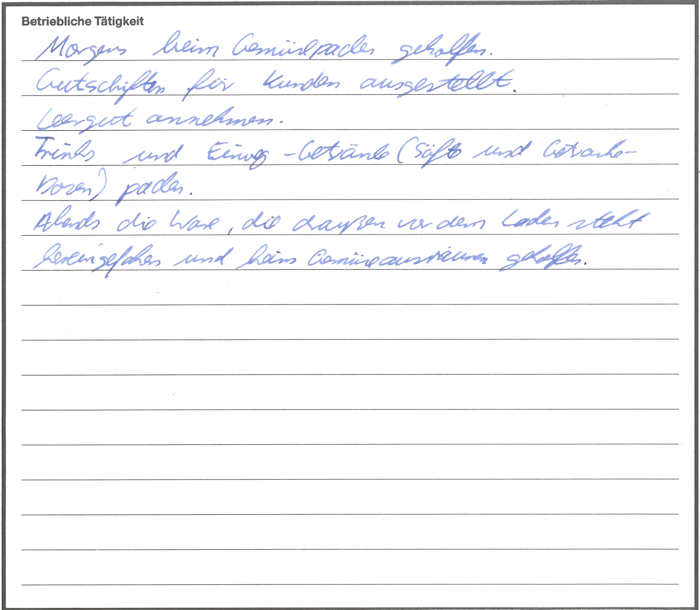 Betriebliche Tätigkeit
Morgens beim Gemüsepacken geholfen.
Gutschriften für Kunden ausgestellt.
Leergut annehmen.
Trinks und Einweg-Getränke (Säfte und Getränke-
dosen) packen.
Abends die Ware, die draußen vor dem Laden steht
hereingefahren und beim Gemüseausräumen geholfen.